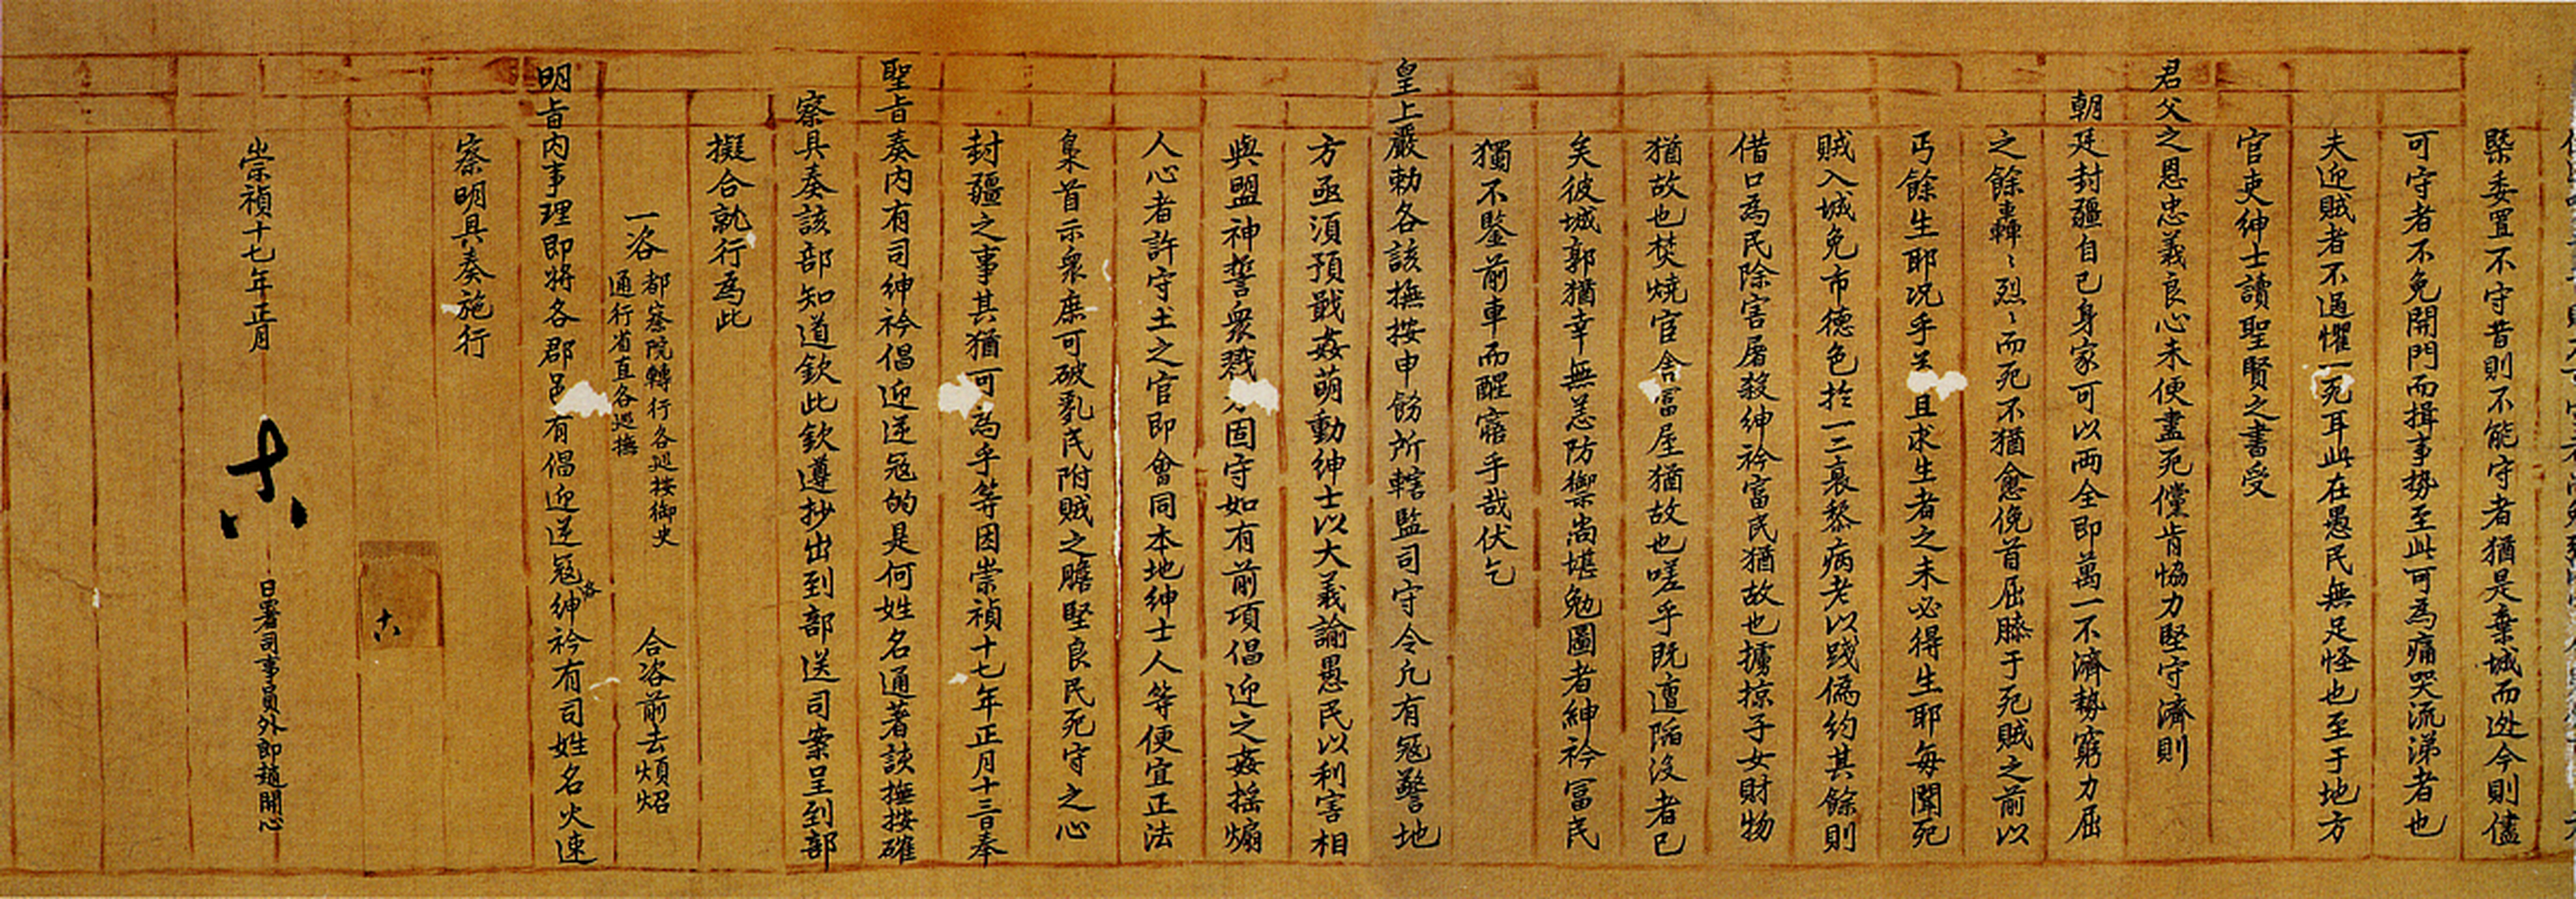 槩委置不守昔則不能守者猶是棄城而迯今則儘
可守者不免開門而揖事势至此可為痛哭流涕者也
夫迎賊者不過懼一死耳此在愚民無足怪也至于地方
官吏紳士讀聖賢之書受
君父之恩忠義良心未便盡死儻肯恊力堅守濟則
朝廷封疆自已身家可以両全即萬一不濟勢窮力屈
之餘轟〻烈〻而死不猶愈俛首屈膝于死賊之前以
丐餘生耶况乎 且求生者之未必得生耶每聞死
賊入城免市德色扵一二衰黎病老以踐僞約其餘則
借口為民除害屠殺紳衿富民猶故也擄掠子女財物
猶故也焚燒官舍富屋猶故也嗟乎既遭陷沒者已
矣彼城郭猶幸無恙防禦尚堪勉圖者紳衿富民
獨不鑒前車而醒寤乎哉伏乞
皇上嚴勅各該撫按申飭所轄監司守令凢有冦警地
方亟湏預戢姦萌動紳士以大義諭愚民以利害相
與盟神誓衆戮 固守如有前項倡迎之姦揺煽
人心者許守土之官即會同本地紳士人等便宜正法
梟首示衆庶可破亂民附賊之膽堅良民死守之心
封疆之事其猶可為乎等因崇禎十七年正月十三日奉
聖旨奏內有司紳衿倡迎逆冦的是何姓名通著該撫按確
察具奏該部知道欽此欽遵抄出到部送司案呈到部
擬合就行為此
一咨
都察院轉行各廵按御史
通行省直各廵撫
合咨前去煩炤
明旨內事理即將各郡邑有倡迎逆冦紳衿有司姓名火速
察明具奏施行
十八
崇禎十七年正月
十八
日署司事員外郎趙開心